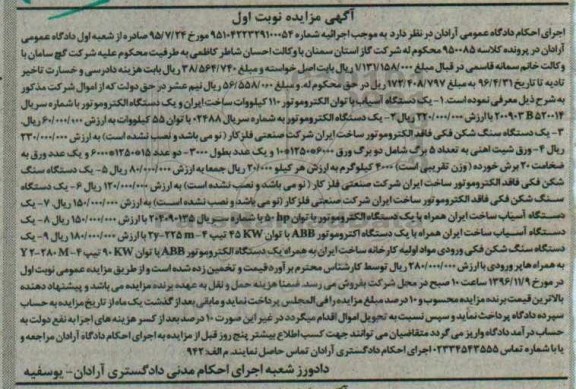 آگهی مزایده نوبت اول
اجرای احکام دادگاه عمومی آرادان در نظر دارد به موجب اجرائیه شماره ۹۵۱۰۴۲۲۳۲۹۱۰۰۰۵۴ مورخ ۹۵/۷/۲۴ صادره از شعبه اول دادگاه عمومی
آرادان در پرونده کلاسه ۹۵۰۰۸۵ محکوم له شرکت گاز استان سمنان با وکالت احسان شاطر کاظمی به طرفیت محکوم علیه شرکت گچ سامان با
وکالت خانم سمانه قاسمی در قبال مبلغ ۱/۱۳۱/۱۵۸/۰۰۰ ریال بابت اصل خواسته و مبلغ ۳۸/۵۶۴/۷۴۰ ریال بابت هزینه دادرسی و خسارت تاخیر
تادیه تا تاریخ ۹۶/۴/۳۱ به مبلغ ۱۷۲/۴۰۸/۷۹۷ ریال در حق محکوم له و مبلغ ۵۶/۵۵۸/۰۰۰ ریال نیم عشر در حق دولت که از اموال شرکت مذکور
به شرح ذیل معرفی نموده است. ۱- یک دستگاه آسیاب با توان الکتروموتور ۱۱۰ کیلووات ساخت ایران و یک دستگاه الکتروموتور با شماره سریال
۲۰۰۹۰۳B۵۲۰۰۱۴ با ارزش ۲۲۰/۰۰۰/۰۰۰ ریال ۲- یک دستگاه الکتروموتور به شماره سریال ۰۲۴۸۸ با توان ۵۵ کیلووات به ارزش ۶۰/۰۰۰/۰۰۰ ریال.
۳- یک دستگاه سنگ شکن فکی فاقد الکتروموتور ساخت ایران شرکت صنعتی فلز کار (نو می باشد و نصب نشده است) به ارزش ۲۳۰/۰۰۰/۰۰۰
ریال ۴- ورق شیت آهنی به تعداد ۵ برگ شامل دو برگ ورق ۶۰۰۰*۱۲۵۰*۱۰ و یک عدد بطول ۳۰۰۰- دو عدد ۱۵*۱۲۵۰*۶۰۰۰ و یک عدد ورق به
ضخامت ۲۰ برش خورده (وزن تقریبی است) ۴۰۰۰ کیلوگرم به ارزش هر کیلو ۲۰/۰۰۰ ریال جمعا به ارزش ۸۰/۰۰۰/۰۰۰ ریال ۵- یک دستگاه سنگ
شکن فکی فاقد الکتروموتور ساخت ایران شرکت صنعتی فلز کار (نو می باشد و نصب نشده است) به ارزش ۱۲۰/۰۰۰/۰۰۰ ریال ۶- یک دستگاه
سنگ شکن فکی فاقد الکتروموتور ساخت ایران شرکت صنعتی فلز کار (نو می باشد و نصب نشده است) به ارزش ۱۵۰/۰۰۰/۰۰۰ ریال. ۷- یک
دستگاه آسیاب ساخت ایران همراه با یک دستگاه الکتروموتور با توان ۵۰ hp با شماره سریال ۲۰۴۰۹۰۱۳۵ با ارزش ۱۵۰/۰۰۰/۰۰۰ ریال ۸- یک
دستگاه آسیاب ساخت ایران همراه با یک دستگاه الکتروموتور ABB با توان ۴۵ KW تیپ ۴-۲۲۵ m ۲y با ارزش ۱۸۰/۰۰۰/۰۰۰ ریال ۹- یک
دستگاه سنگ شکن فکی ورودی مواد اولیه کارخانه ساخت ایران به همراه یک دستگاه الکتروموتور ABB با توان ۹۰ KW تیپ Y۲-۲۸۰ M-۴
به همراه هاپر ورودی با ارزش ۲۸۰/۰۰۰/۰۰۰ ریال توسط کارشناس محترم برآورد قیمت و تخمین زده شده است و از طریق مزایده عمومی نوبت اول
در مورخ ۱۳۹۶/۱۱/۹ ساعت ۱۰ صبح در محل شرکت بفروش می رسد. ضمنا هزینه حمل و نقل به عهده برنده مزایده می باشد و پیشنهاد دهنده
بالاترین قیمت برنده مزایده محسوب و ۱۰ درصد مبلغ مزایده را فی المجلس پرداخت نماید و مابقی بعد از گذشت یک ماه از تاریخ مزایده به حساب
سپرده دادگاه پرداخت نماید و سپس نسبت به تحویل اموال اقدام میگردد در غیر این صورت ۱۰ درصد بعد از کسر هزینه های اجرا به نفع دولت به
حساب درآمد دادگاه واریز می گردد متقاضیان می توانند جهت کسب اطلاع بیشتر پنج روز قبل از مزایده به اجرای احکام دادگاه آرادان مراجعه و
یا با شماره تماس ۰۲۳۳۴۵۴۳۵۵۵ اجرای احکام دادگستری آرادان تماس حاصل نمایند. م الف: ۹۴۲
دادورز شعبه اجرای احکام مدنی دادگستری آرادان - یوسفیه